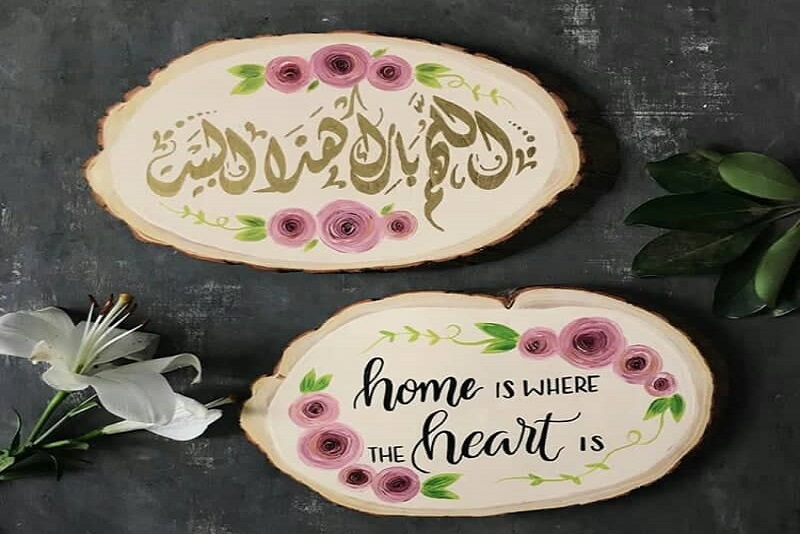 اللهم بارك هذا البيت
home IS WHERE
THE heart IS